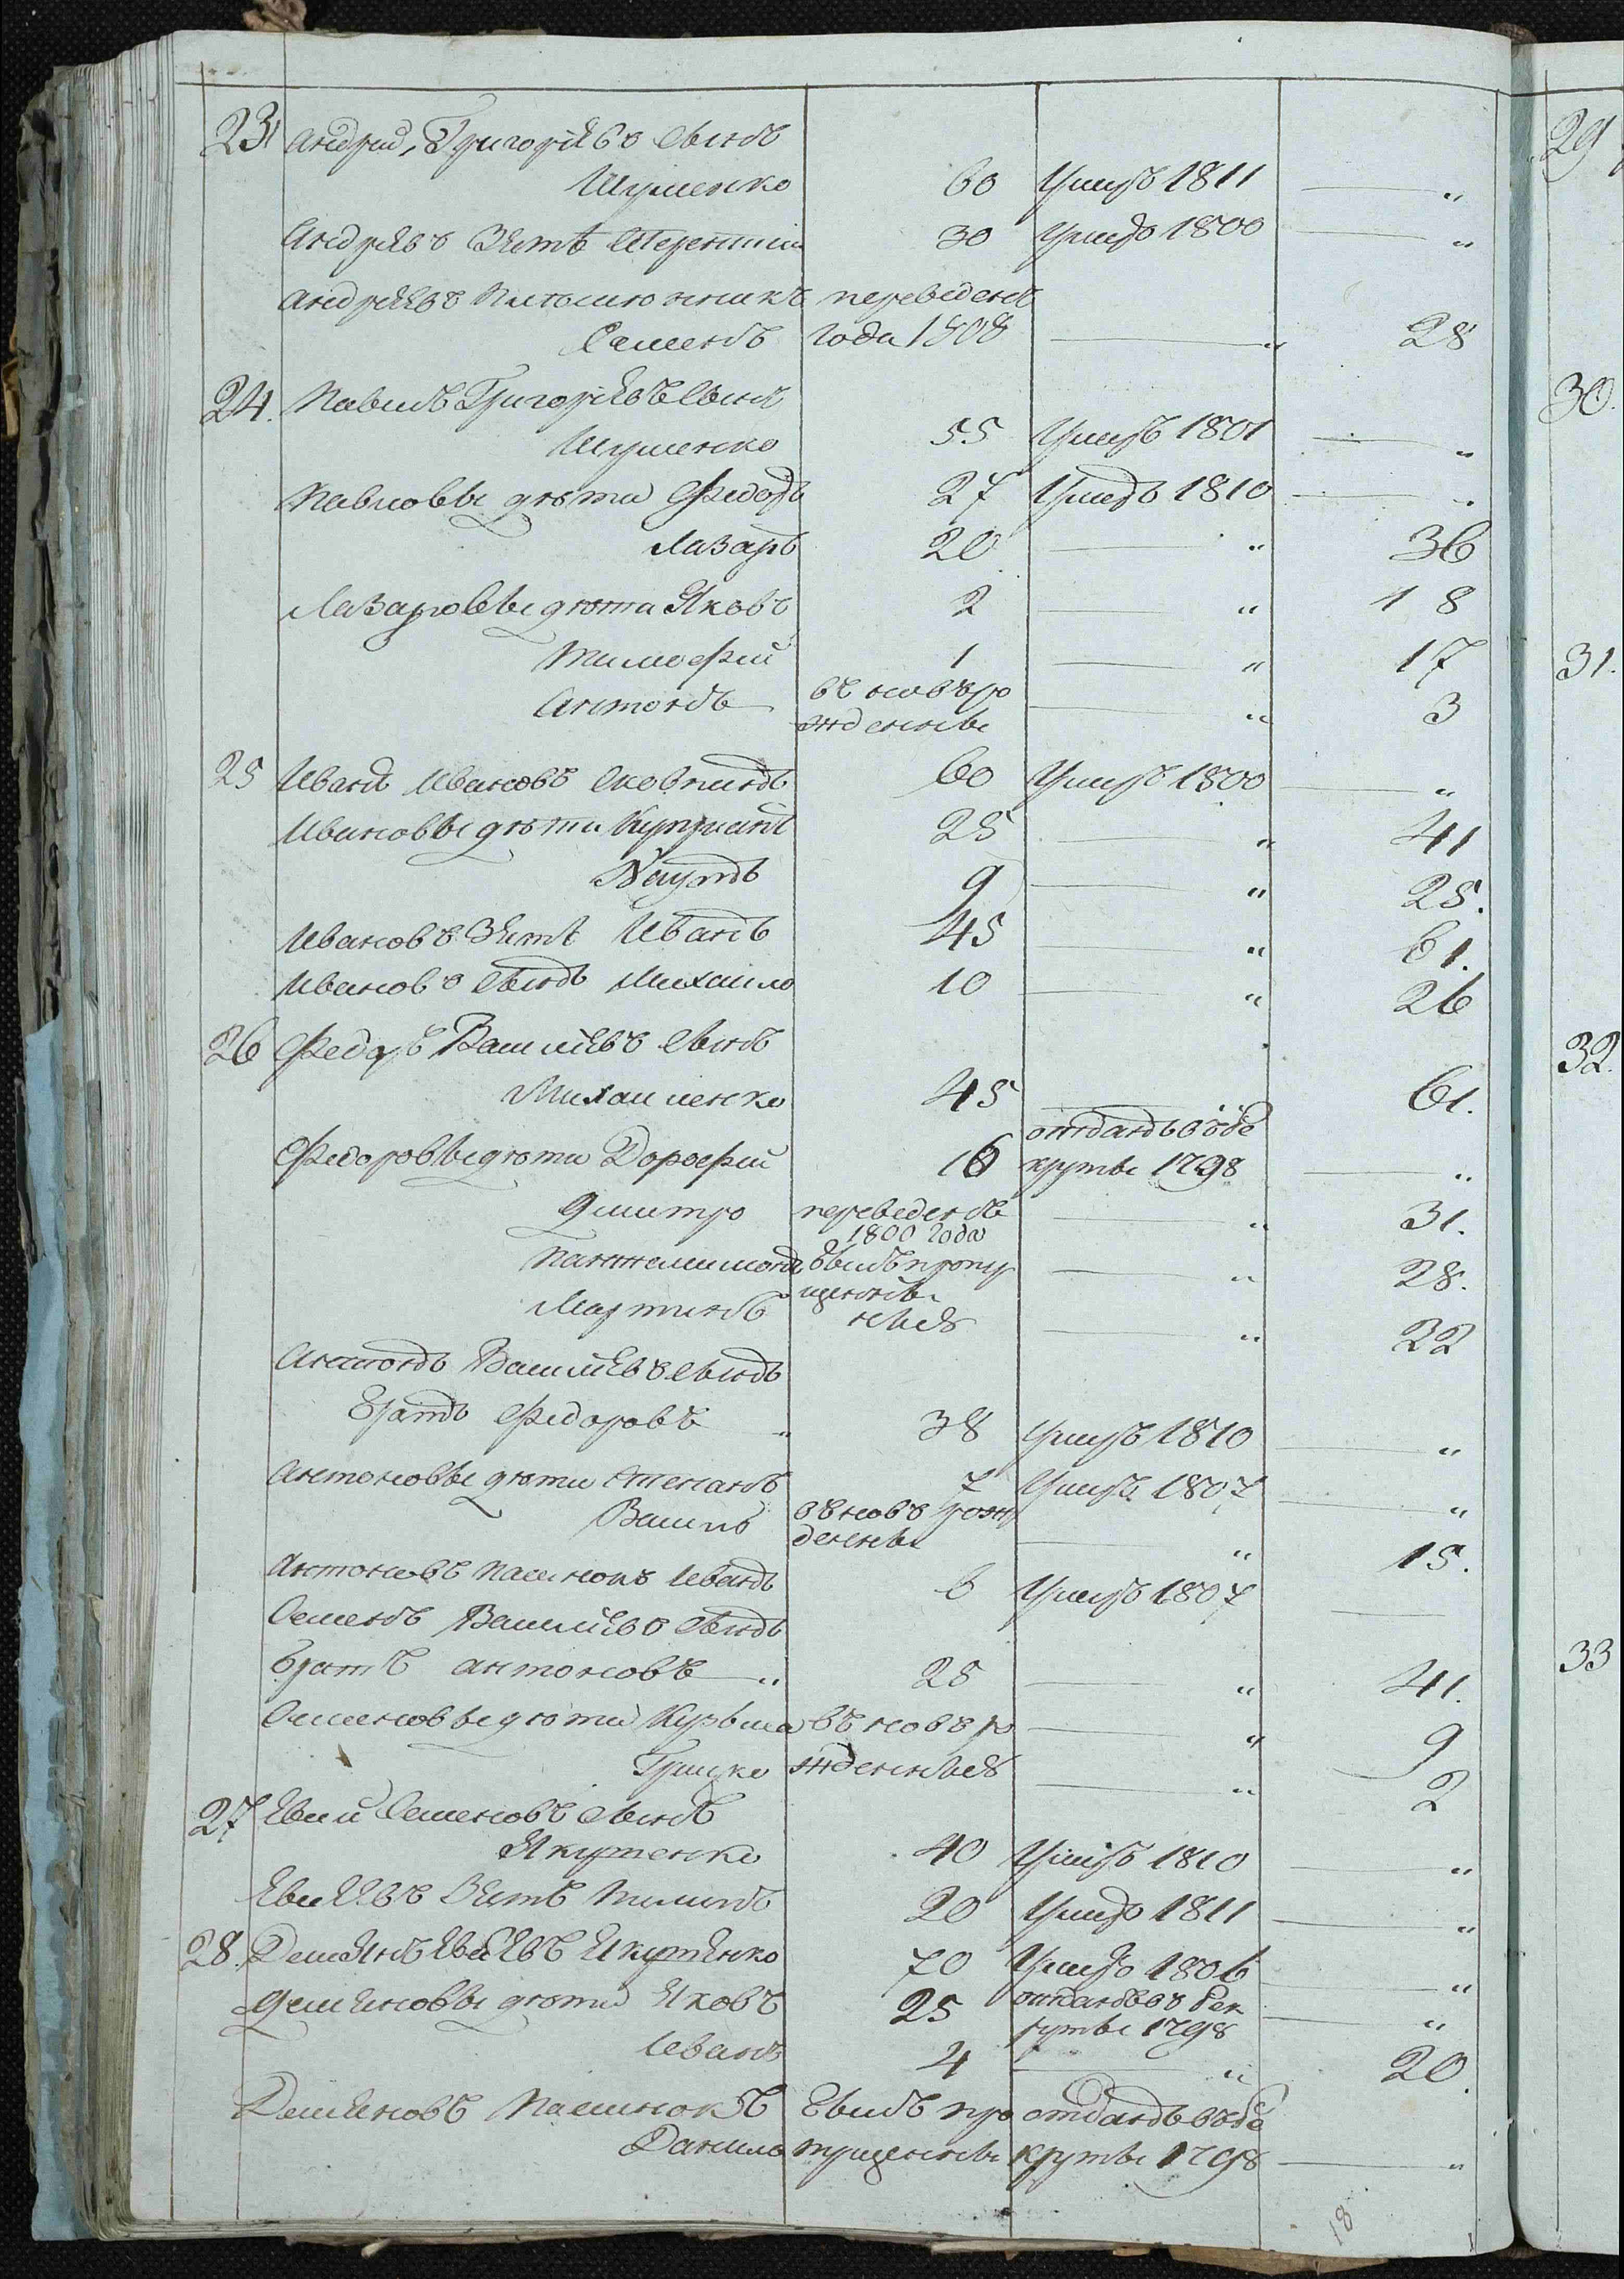 23 Андрей Григоріевъ сынъ
Шуменко 60 Умеръ 1811 „
Андреевъ Зять Терентій 30 Умеръ 1800 „
Андреевъ племянникъ переведенъ
Семенъ года 1808 „ 28
24. Павелъ Григорьевъ сынъ
Шуменко 55 Умеръ 1801 „
Павловы дѣти Федоръ 27 Умеръ 1810 „
Лазарь 20 „ 36
Лазаровы дѣти Яковъ 2 „ 18
Тимофей 1 „ 17
Антонъ въ новъ ро
жденны „ 3
25 Иванъ Ивановъ 60 Умеръ 1800 „
Ивановы дѣти Купріанъ 25 „ 41
Наумъ 9 „ 25.
Ивановъ Зять Иванъ 45 „ 61.
Ивановъ сынъ Михайло 10 „ 26
26 Федоръ Василіевъ сынъ
Михайленко 45 „ 61.
отданъ въ ре
Федоровы дѣти Дорофей 16 круты 1798 „
Дмитро переведенъ „ 31.
1800 года
Пантелимонъ былъ пропу „ 28.
щенны
Мартинъ ные „ 22
Антонъ Василіевъ сынъ
Братъ Федоровъ „ 38 Умеръ 1810 „
Антоновы дѣти Степанъ 7 Умеръ 1807 „
Василь въ новъ рож
денны „ 15.
Антоновъ пасынокъ Иванъ 6 Умеръ 1807
Семенъ Василіевъ сынъ
братъ Антоновъ „ 25 „ 41.
Семеновы дѣти Кузьма въ новъ ро „ 9
Грицко жденные „ 2
27 Евсей Семеновъ сынъ
Якутенко 40 Умеръ 1810 „
Евсеевъ Зять Филипъ 20 Умеръ 1811 „
28. Демянъ Евсеевъ Якутенко 70 Умеръ 1806 „
Демяновы дѣти Яковъ 25 отданъ въ рек „
руты 1798
Иванъ 4 „ 20.
Демяновъ пасынокъ былъ про отданъ въ ре
Данило пущенны круты 1798 „
18
29
30.
31.
32.
33